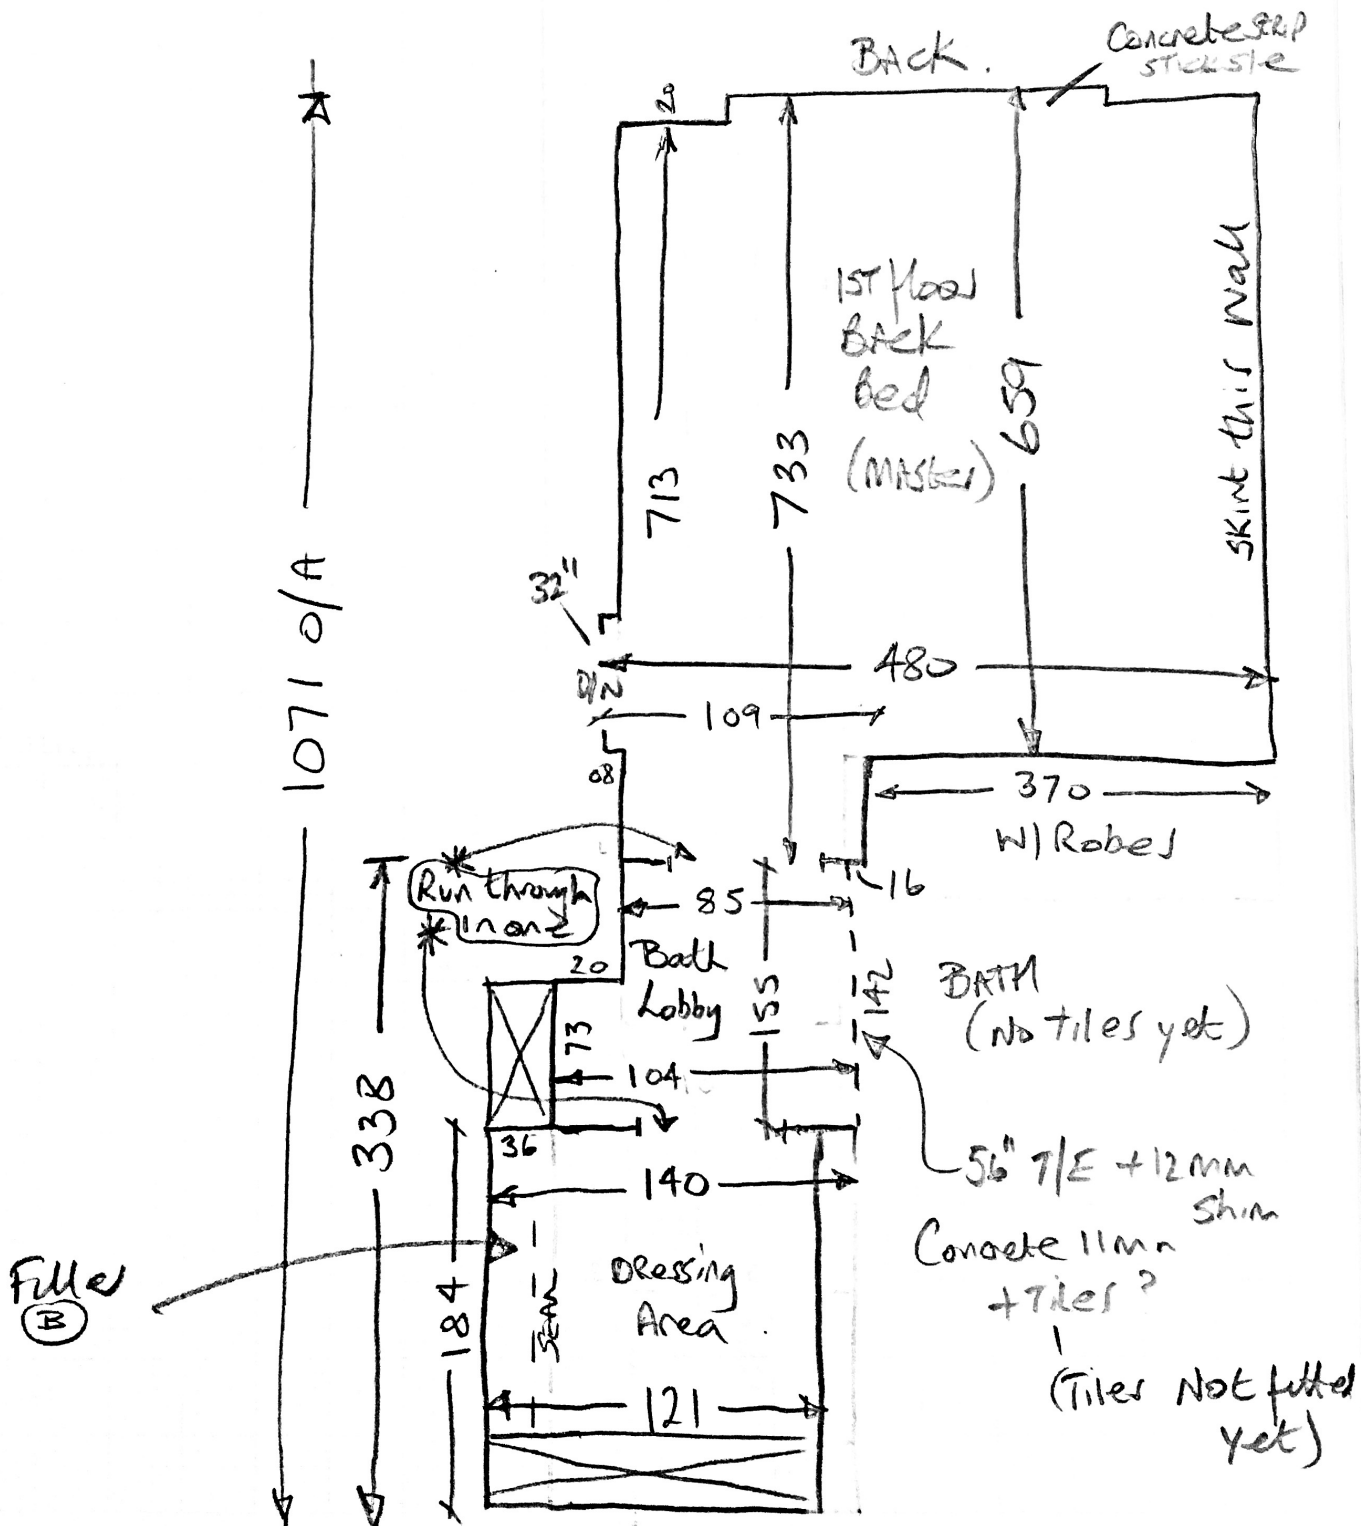 BACK.
Concrete strip
20
1ST floor
BACK
Bed
(Master)
713
733
659
Skirt this wall
1071 O/A
32"
480
109
08
370
W/Robes
Run through
In one
85
16
20
Bath
Lobby
155
142
BATH
(No tiles yet)
73
104
338
36
140
56" T/E + 12mm
Shim
Concrete 11mm
+ Tiles?
(Tiles Not fitted
yet)
Filler
B
184
SEAM
Dressing
Area.
121